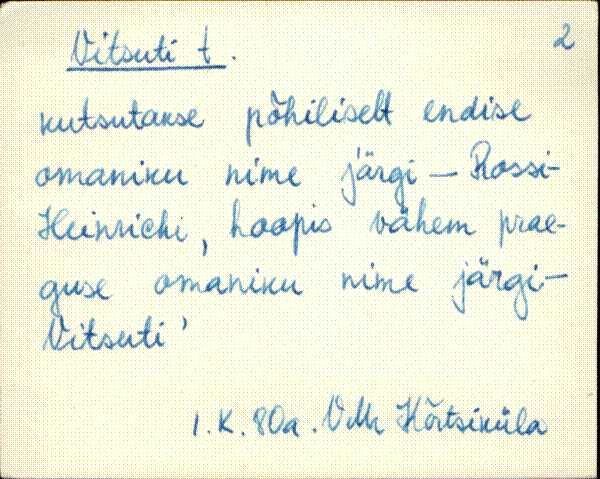 Vitsuti t. 2
kutsutakse põhiliselt endise
omaniku nime järgi – Rossi-
Heinrichi, hoopis vähem prae-
guse omaniku nime järgi –
Vitsuti'
I. K. 80a. VMr Hõrtsiküla